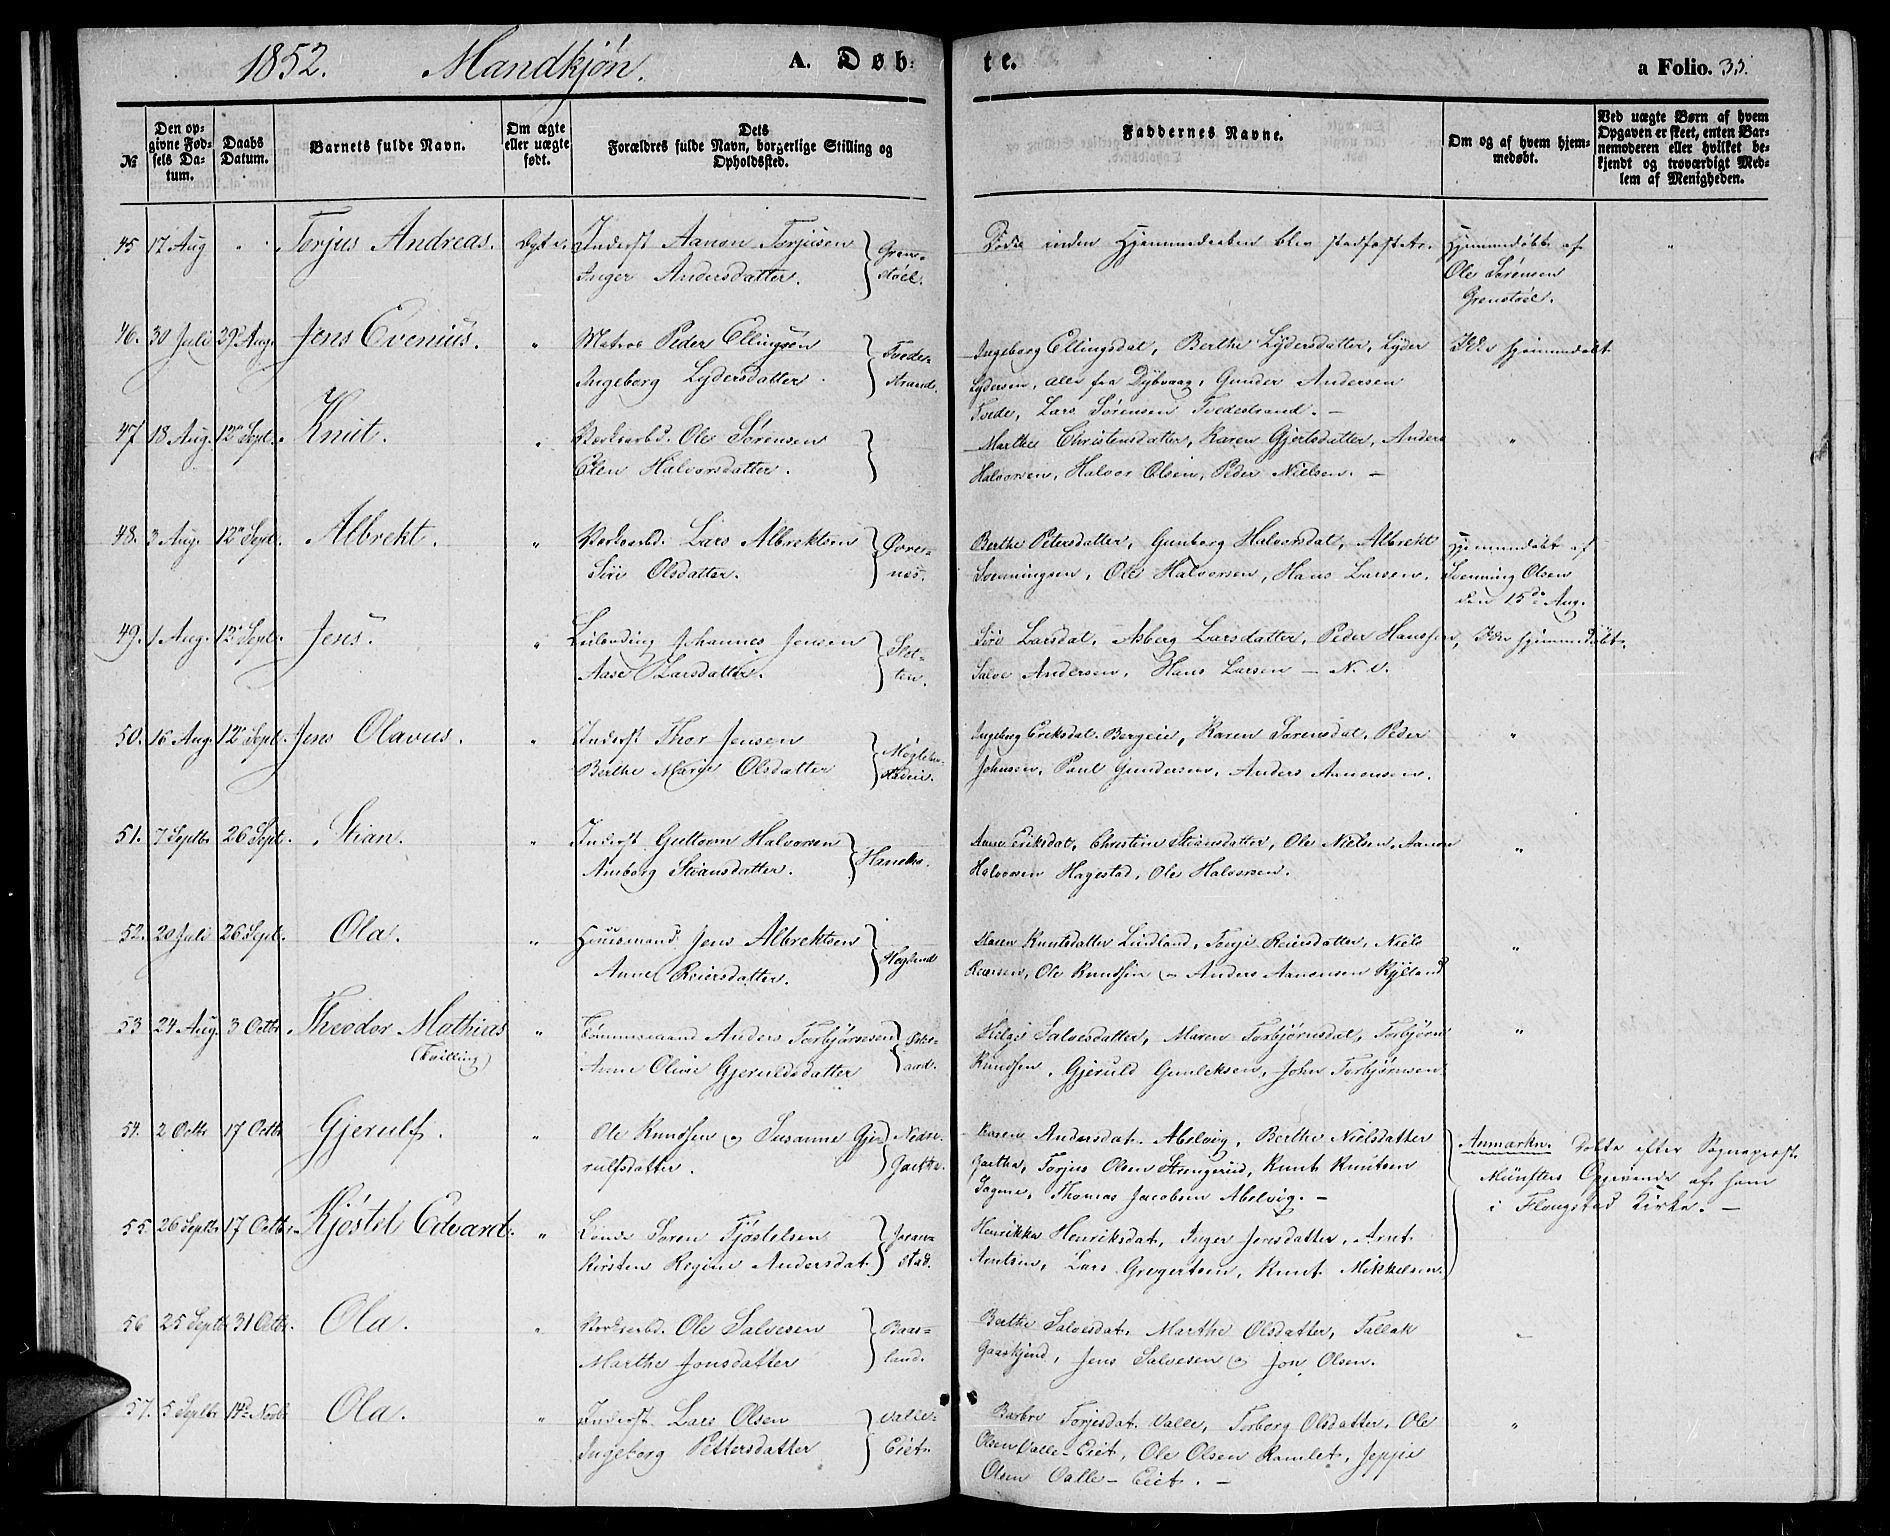 1852. Mandkjøn. A. Døb- te. a Folio. 33.
№
Den op-
givne Fød-
sels Da-
tum.
Daabs
Datum.
Barnets fulde Navn.
Om ægte
eller uægte
født.
Dets
Forældres fulde Navn, borgerlige Stilling og
Opholdssted.
Faddernes Navne.
Om og af hvem hjem-
medøbt.
Ved uægte Børn af hvem
Opgaven er skeet, enten Bar-
nemoderen eller hvilket be-
kjendt og troværdigt Med-
lem af Menigheden.
45 17 Aug " Torjus Andreas. Inderst Aanon Torjusen
Inger Andersdatter.
Gren-
støel.
Døde inden Hjemmedaaben blev stadfæstet.
Hjemmedøbt af
Ole Sørensen
Grenstøel.
46. 30 Juli 29 Aug. Jens Evenius. " Matros Peder Ellingsen
Ingeborg Lydersdatter.
Tvede-
strand.
Ingeborg Ellingsdat, Berthe Lydersdatter, Lyder
Lydersen, alle fra Dybvaag, Gunder Andersen
Tvede, Lars Sørensen Tvedestrand. —
Ikke hjemmedøbt
47 18 Aug. 12 Sept. Knut. " Værksarbd. Ole Sørensen
Elen Halvorsdatter.
Marthe Christensdatter, Karen Gjertsdatter, Anders
Halvorsen, Halvor Olsen, Peder Nielsen. —
"
48. 3 Aug. 12 Sept. Albrekt. " Værksarbd. Lars Albrektsen
Siri Olsdatter.
Øvre-
næs.
Berthe Petersdatter, Gunborg Halvorsdat, Albrekt
Svenningsen, Ole Halvorsen, Hans Larsen.
Hjemmedøbt af
Svenning Olsen
den 15de Aug.
49. 1 Aug. 12 Sept. Jens. " Leilending Johannes Jensen
Aase Larsdatter.
Slet-
ten.
Siri Larsdat, Asberg Larsdatter, Peder Hansen,
Salve Andersen, Hans Larsen
Ikke hjemmedøbt.
50. 16 Aug. 12 Sept. Jens Olavus. " Inderst Thor Jensen
Berthe Marie Olsdatter
Ingeborg Eriksdat. Bergeie, Karen Sørensdat, Peder
Johnsen, Paul Gundersen, Anders Aanonsen.
"
51. 7 Septbr 26 Sept. Stian. " Inderst Guttorm Halvorsen
Amborg Stiansdatter.
Anne Eriksdat, Christine Stiansdatter, Ole Nielsen, Aanon
Halvorsen Hagestad, Ole Halvorsen.
"
52. 20 Juli 26 Sept. Ola. " Huusmand Jens Albrektsen
Anne Reiersdatter.
Høgland
Karen Knutsdatter Lindland, Torje Reiersdatter, Niels
Reiersen, Ole Knudsen og Anders Aanonsen Rylland
"
53 24 Aug. 3 Octbr Theodor Mathias
(Tvilling)
" Tømmermand Anders Torbjørnsen
Anne Olive Gjeruldsdatter
Helge Salvesdatter, Maren Torbjørnsdat, Torbjørn
Knudsen, Gjeruld Gunleksen, John Torbjørnsen
"
54. 2 Octbr 17 Octbr Gjerulf. " Ole Knudsen og Susanne Gje-
rulfsdatter.
Neder-
Gartha.
Karen Andersdat. Abelvig, Berthe Nielsdatter
Gartha, Torjus Olsen Strengereid, Knut Knutsen
Sagene, Thomas Jacobsen Abelvig. —
Anmærkn. Døbte efter Sognepræst
Münsters Opgivende af ham
i Flougstad Kirke. —
55. 26 Septbr. 17 Octbr. Kjøstel Edvard. " Søren Tjøstelsen
Kirsten Regine Andersdat.
Joran-
stad.
Henrikke Henriksdat, Inger Jensdatter, Arnt
Arntsen, Lars Gregertsen, Knut Mikkelsen.
56 25 Septbr 31 Octbr. Ola. " Værksarbd. Ole Salvesen
Marthe Jonsdatter
Baas-
land.
Berthe Salvesdat. Marthe Olsdatter, Tallak
Gaaskjend, Jens Salvesen og Jon Olsen.
"
57. 5 Septbr 14de Novbr Ola. " Inderst Lars Olsen
Ingeborg Pettersdatter
Valle-
Eiet.
Barbro Torjesdat. Valle, Torborg Olsdatter, Ole
Olsen Valle-Eiet, Ole Olsen Ramlet, Jeppe
Olsen Valle-Eiet. —
"